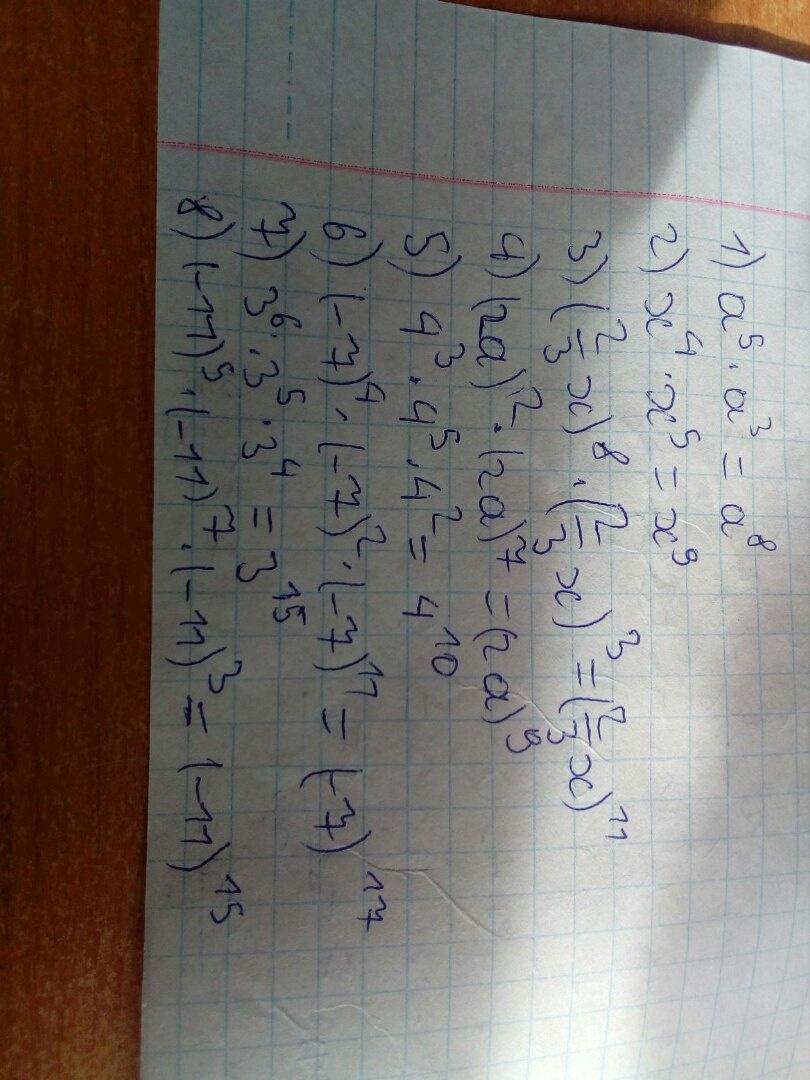 1) a⁵ · a³ = a⁸
2) x⁴ · x⁵ = x⁹
3) (2/3 x)⁸ · (2/3 x)³ = (2/3 x)¹¹
4) (2a)² · (2a)⁷ = (2a)⁹
5) 4³ · 4⁵ · 4² = 4¹⁰
6) (-7)⁴ · (-7)² · (-7)¹¹ = (-7)¹⁷
7) 3⁶ · 3⁵ · 3⁴ = 3¹⁵
8) (-11)⁵ · (-11)⁷ · (-11)³ = (-11)¹⁵